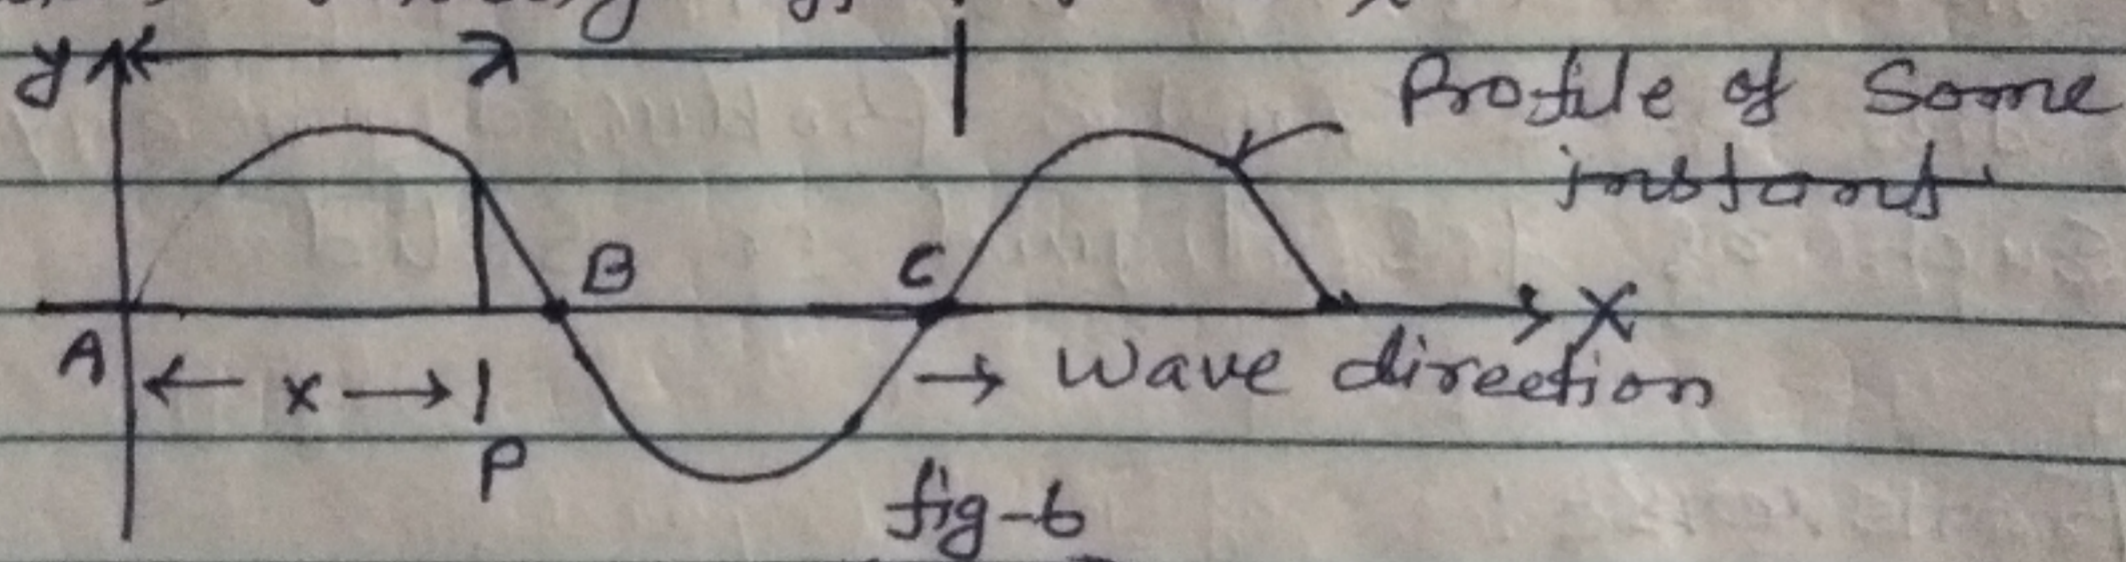 y
λ
Profile of Some
instant
B
C
X
A
← x →
→ Wave direction
P
fig-6